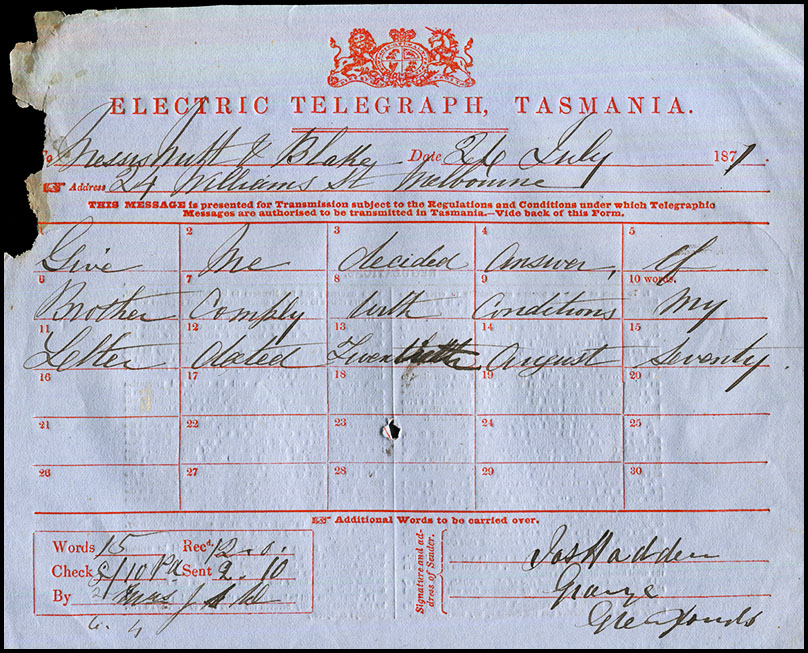 ELECTRIC TELEGRAPH, TASMANIA.
To Messrs & Blake Date 26 July 1871.
Address 24 Williams St Melbourne
THIS MESSAGE is presented for Transmission subject to the Regulations and Conditions under which Telegraphic
Messages are authorised to be transmitted in Tasmania.—Vide back of this Form.
2 3 4 5
Give Me decided answer, If
6 7 8 9 10 words.
Brother Comply with Conditions My
11 12 13 14 15
Letter dated Twentieth August Seventy.
16 17 18 19 20
21 22 23 24 25
26 27 28 29 30
Additional Words to be carried over.
Words 15 Recd. 12.0.
Check 5/10 Pd Sent 2.10
By
Signature and address of Sender.
Jas Hadden
Grange
Green Ponds